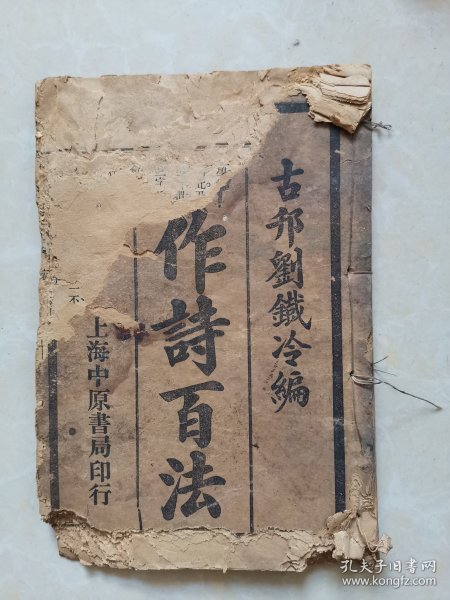 古邗劉鐵冷編
作詩百法
上海中原書局印行
一不
孔夫子旧书网
www.kongfz.com